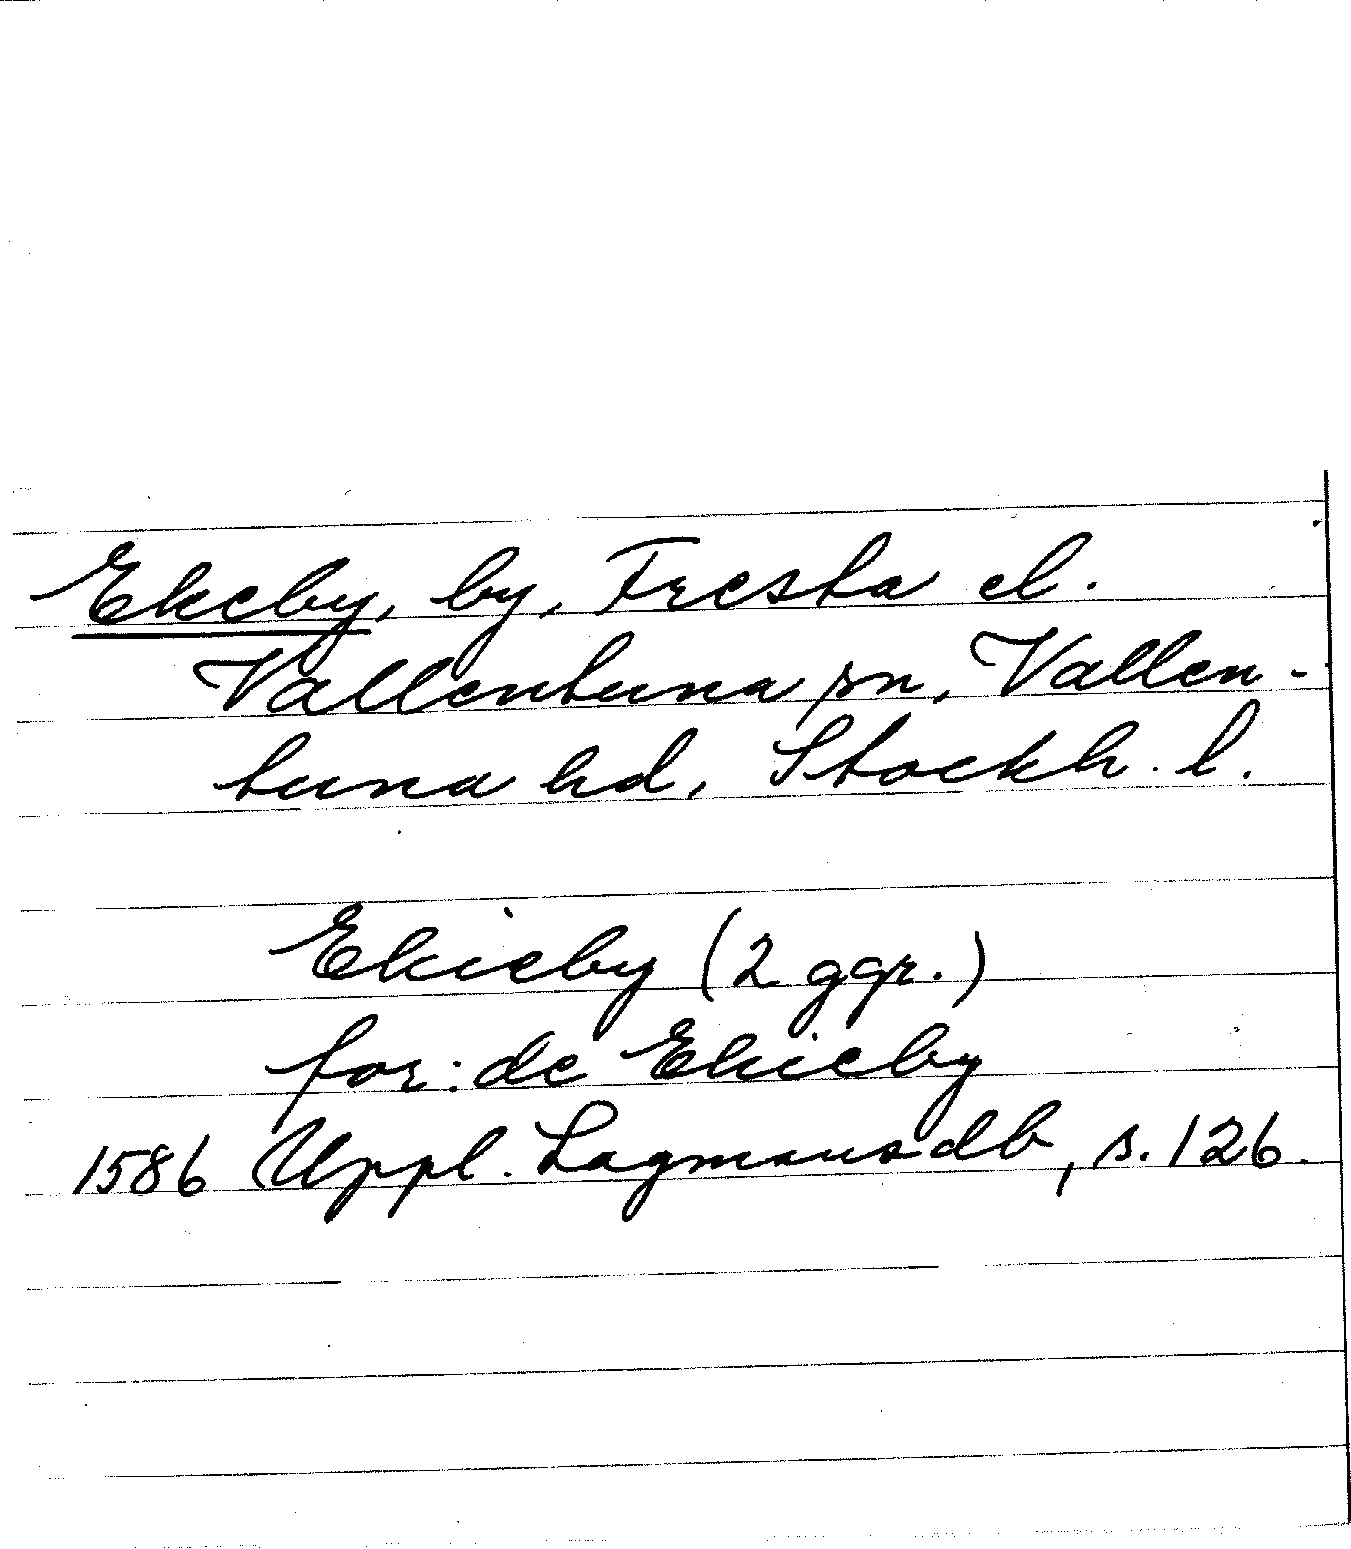 Ekeby, by, Fresta el.
Vallentuna sn, Vallen-
tuna hd, Stockh. l.
Ekieby (2 ggr.)
for: de Ekieby
1586 Uppl. Lagmansdb, s. 126.